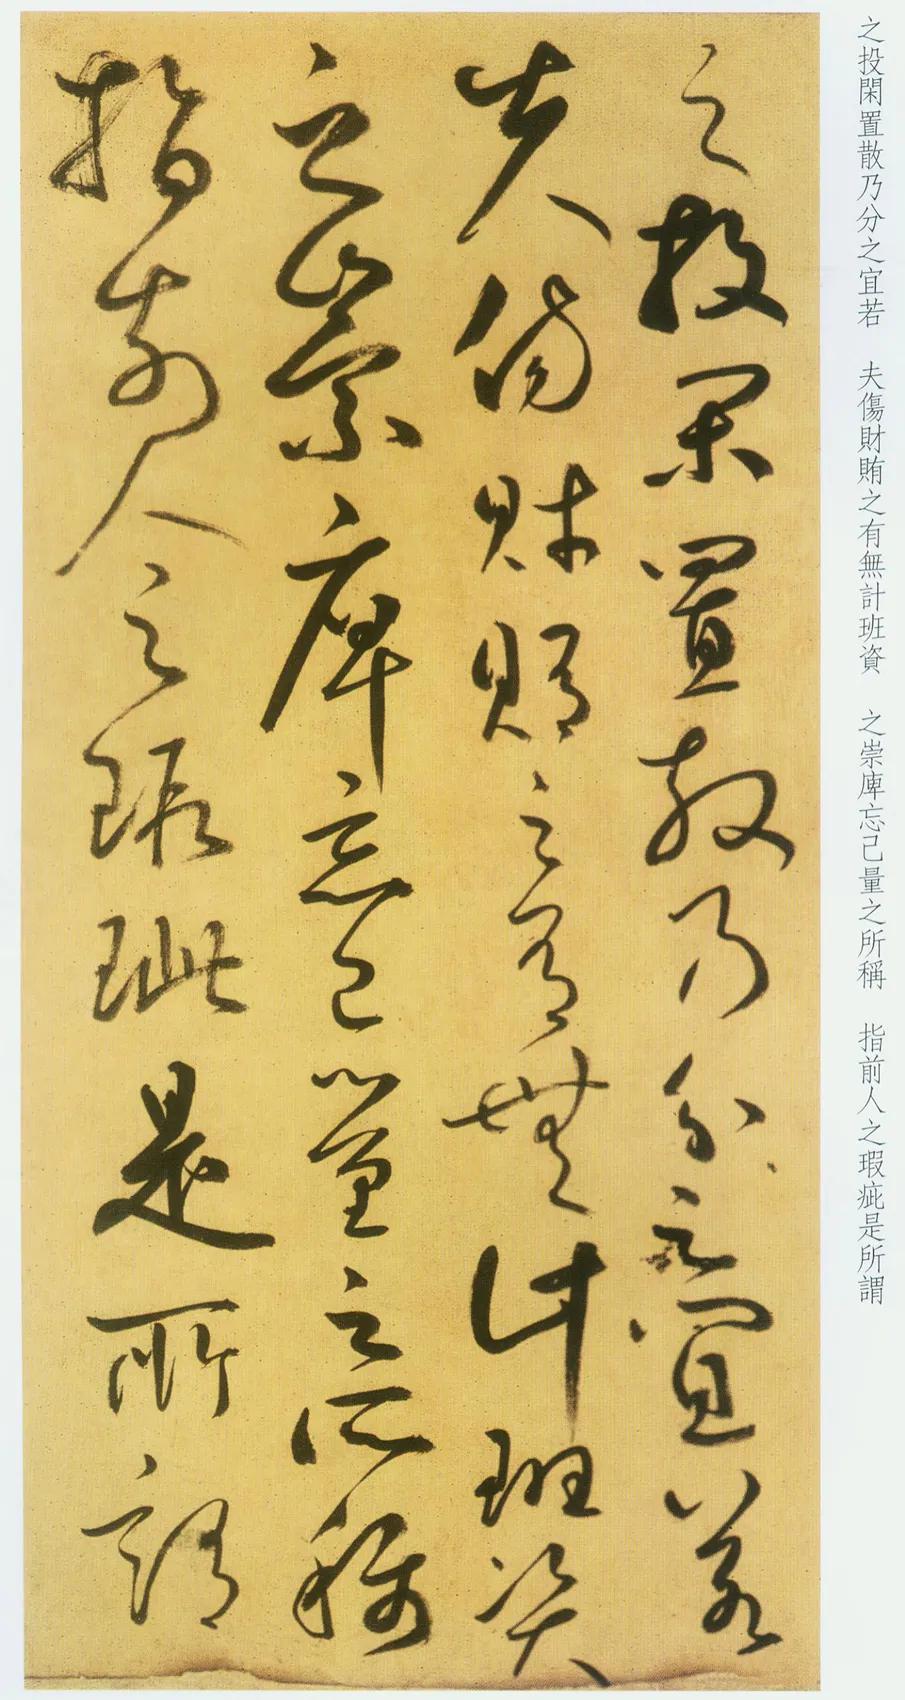 之投閑置散乃分之宜若　夫傷財賄之有無計班資　之崇庳忘己量之所稱　指前人之瑕疵是所謂
之投閑置散乃分之宜若
夫傷財賄之有無計班資
之崇庳忘己量之所稱
指前人之瑕玼是所謂